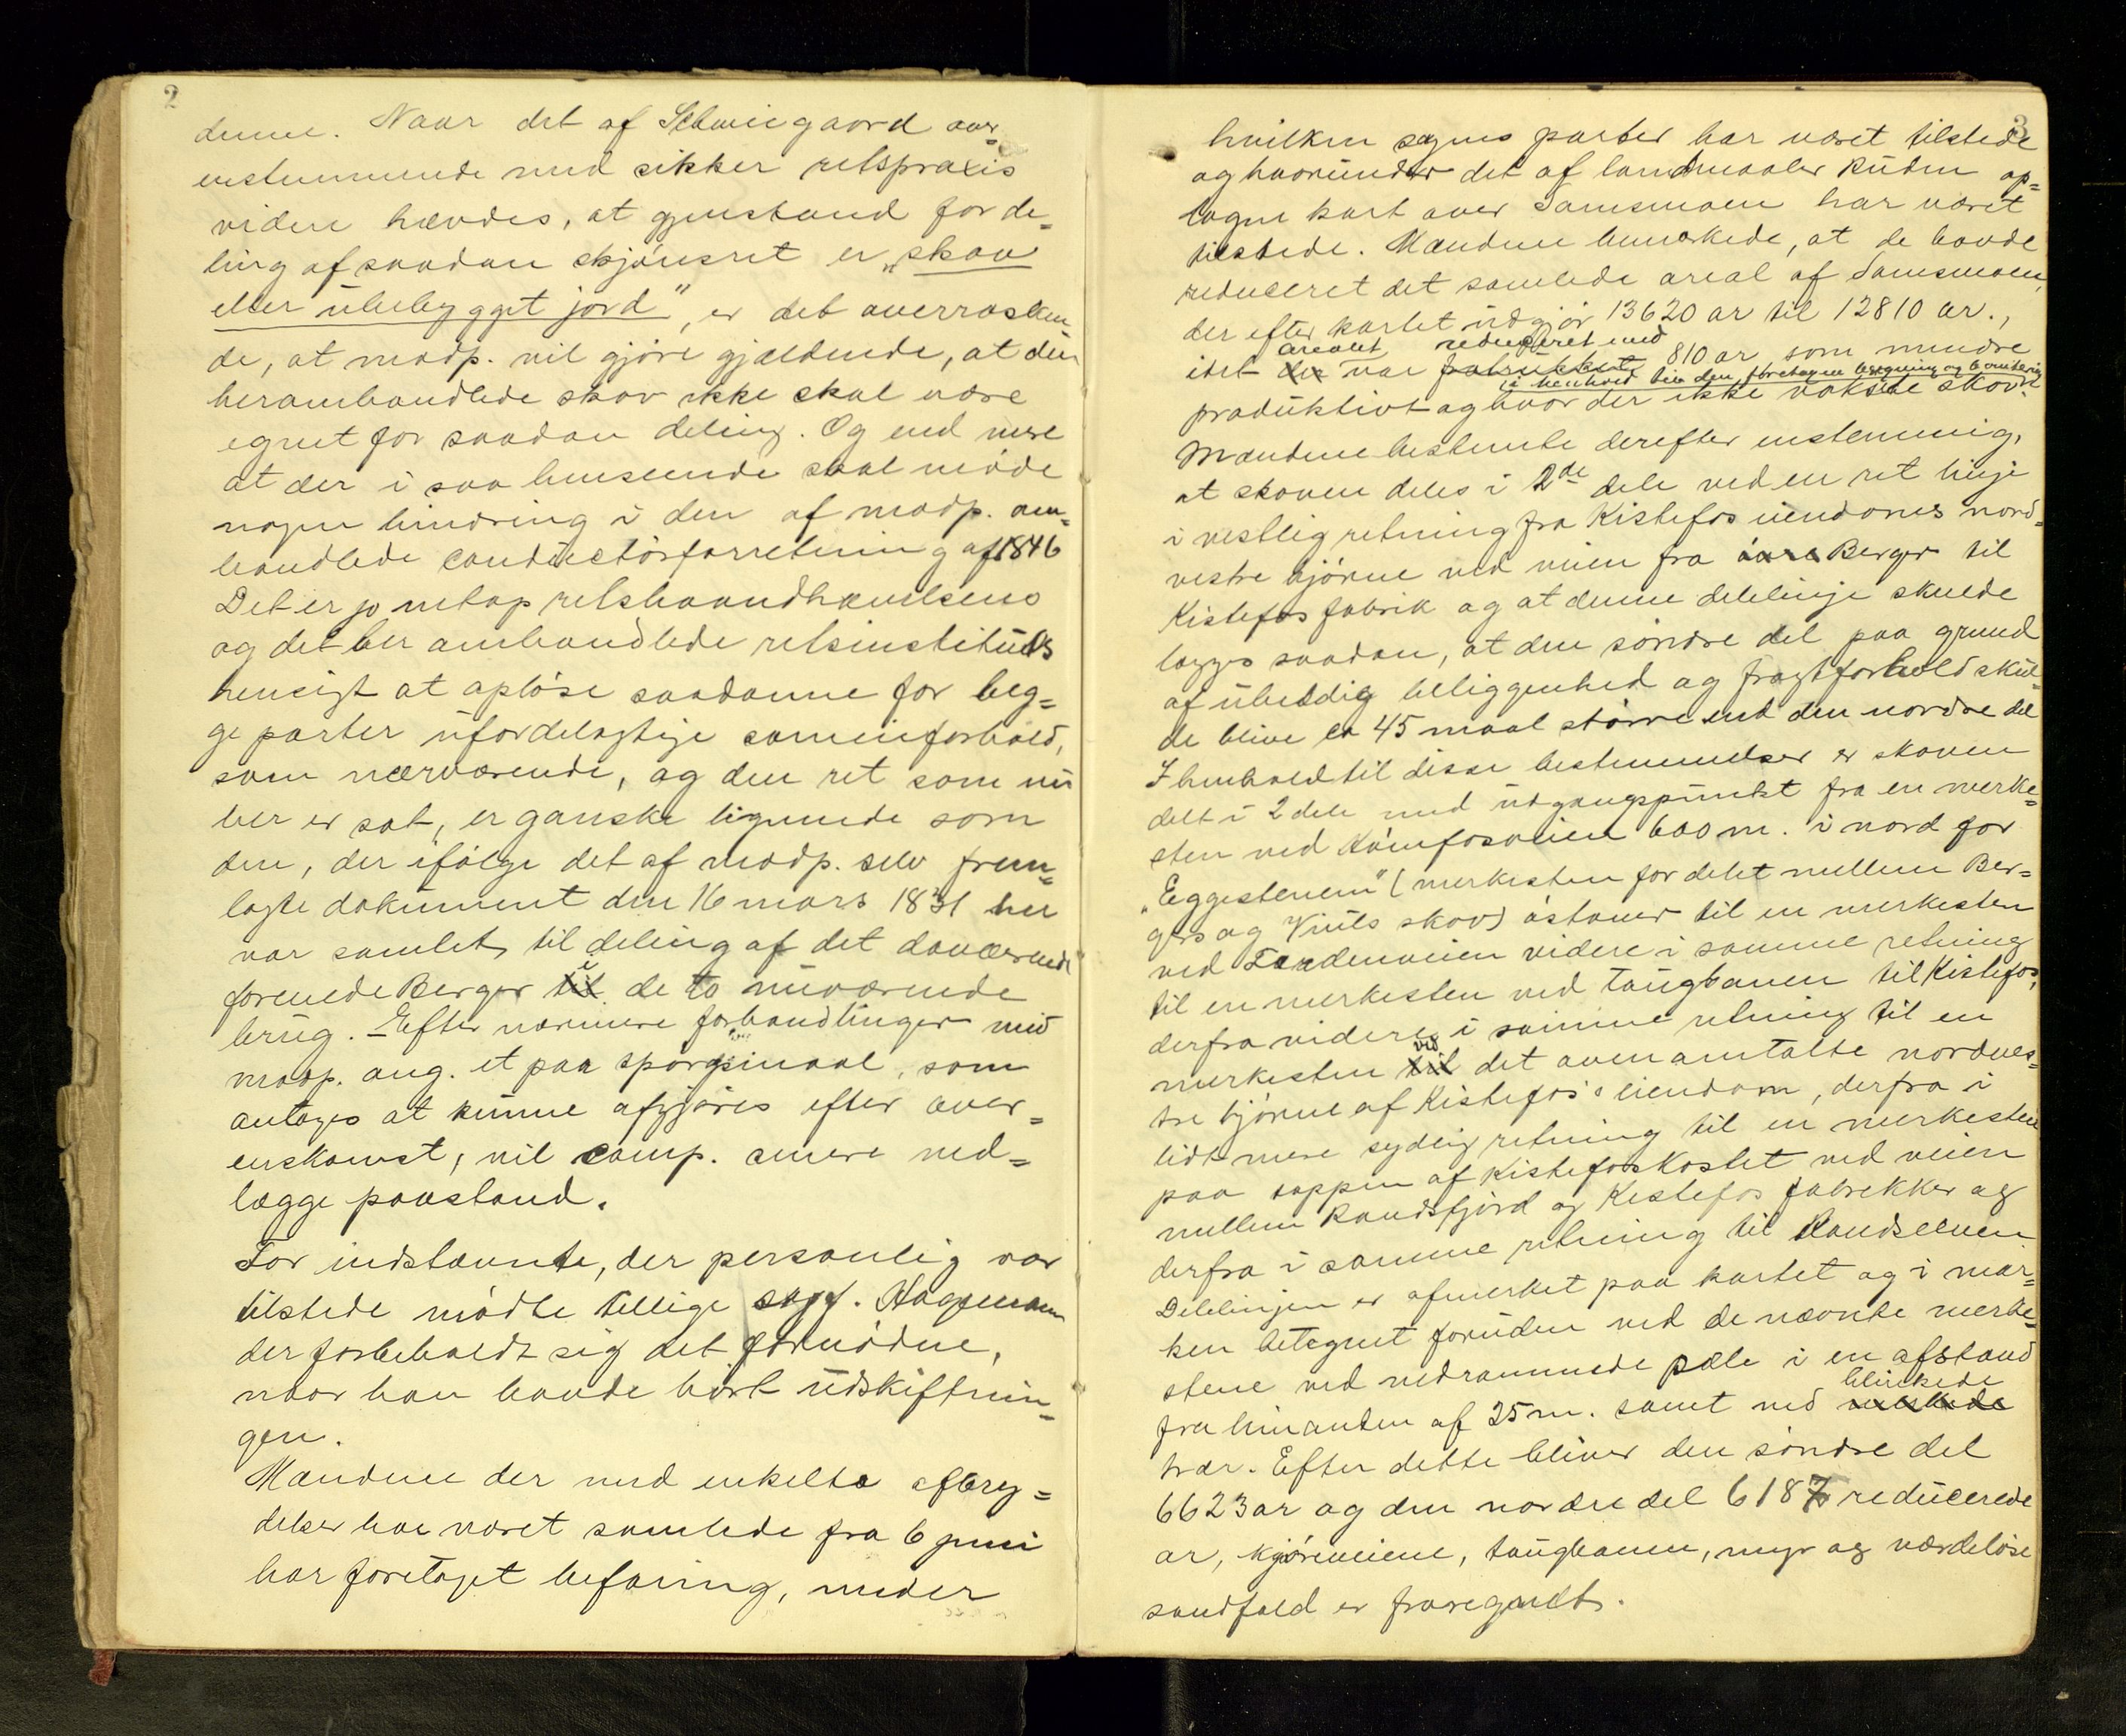 2
denne. Naar det af Schweigaard over=
enstemmende med sikker retspraxis
videre hævdes, at gjenstand for de=
ling af saadan skjønsret er „skov
eller ubebygget jord", er det overrasken=
de, at modp. vil gjøre gjældende, at den
heromhandlede skov ikke skal være
egnet for saadan deling. Og end mere
at der i saa henseende skal møde
nogen hindring i den af modp. om=
handlede conductørforretning af 1846
Det er jo netop retshaandhævelsens
og det her omhandlede retsinstituts
hensigt at opløse saadanne for beg=
ge parter ufordelagtige sameieforhold,
som nærværende, og den ret som nu
her er sat, er ganske lignende som
den, der ifølge det af modp. selv frem=
lagte dokument den 16 mars 1831 her
var samlet til deling af det daværende
forenede Berger til i de to nuværende
brug. – Efter nærmere forhandlinger med
modp. ang. et par spørgsmaal, som
antages at kunne afgjøres efter over=
enskomst, vil comp. senere ned=
lægge paastand.
For indstævnte, der personlig var
tilstede mødte tillige sagf. Hagemann
der forbeholdt sig det fornødne,
naar han havde hørt udskiftnin=
gen.
Mændene der med enkelte afbry=
delser har været samlede fra 6 juni
har foretaget befaring, under
3
hvilken sagens parter har været tilstede
og hvorunder det af landmaaler Ruden op=
tagne kart over Samsmoen har været
tilstede. Mændene bemærkede, at de havde
reduceret det samlede areal af Samsmoen,
der efter kartet udgjør 13620 ar til 12810 ar.,
arealet reduceret med
idet der var fratrukket 810 ar, som mindre
i henhold til den foretagne besigtning og bonitering
produktivt og hvor der ikke vokste skov.
Mændene bestemte derefter enstemmig,
at skoven deles i 2de dele ved en ret linje
i vestlig retning fra Kistefos eiendoms nord=
vestre hjørne ved veien fra øvre Berger til
Kistefos fabrik og at denne delelinje skulde
lægges saadan, at den søndre del paa grund
af uheldig beliggenhed og fragtforhold skul=
de blive ca 45 maal større end den nordre del
I henhold til disse bestemmelser er skoven
delt i 2 dele med udgangspunkt fra en merke=
sten ved Hønfosveien 600 m. i nord for
„Eggestenen" (merkesten for delet mellem Ber=
gers og Viuls skov) østover til en merkesten
ved Tandemveien videre i samme retning
til en merkesten ved taugbanen til Kistefos,
derfra videre i samme retning til en
merkesten til ved det ovenomtalte nordves=
tre hjørne af Kistefos's eiendom, derfra i
lidt mere sydlig retning til en merkesten
paa toppen af Kistefoskastet ved veien
mellem Randsfjord og Kistefos fabrikker og
derfra i samme retning til Randselven
Delelinjen er afmerket paa kartet og i mar=
ken betegnet foruden ved de nævnte merke=
stene ved nedrammede pæle i en afstand
fra hinanden af 25 m. samt ved blinkede
trær. Efter dette bliver den søndre del
6623 ar og den nordre del 6187 reducerede
ar, kjøreveiene, taugbanen, myr og værdeløse
sandfald er fraregnet.